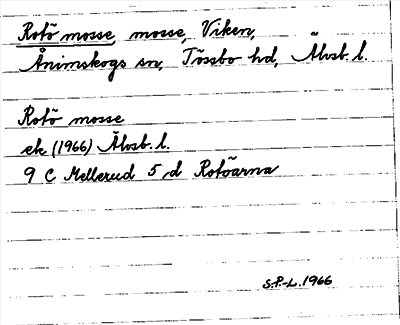 Rotö mosse, mosse, Viken,
Ånimskogs sn, Tössbo hd, Älvsb. l.
Rotö mosse
ek (1966) Älvsb. l.
9 C Mellerud 5 d Rotöarna
S.P.-L. 1966